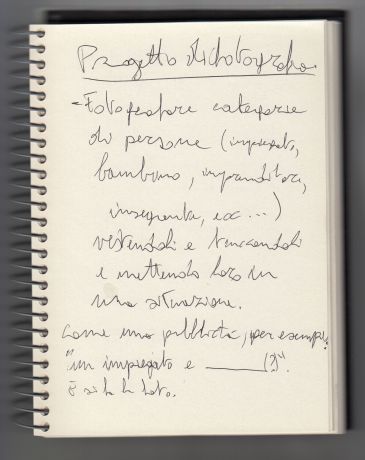 Progetto di fotografia.
- Fotografare categorie
di persone (impiegato,
bambino, imprenditori,
insegnante, ecc...)
vestendoli e truccandoli
e mettendo loro in
una situazione.
Come una pubblicità, per esempio:
"un impiegato e ______(?)".
E si fa la foto.